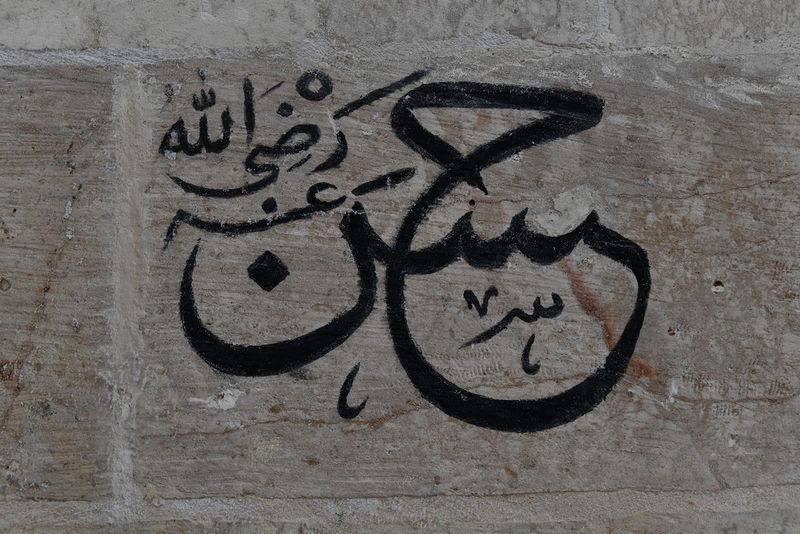 حسن
رَضِيَ الله
عنه